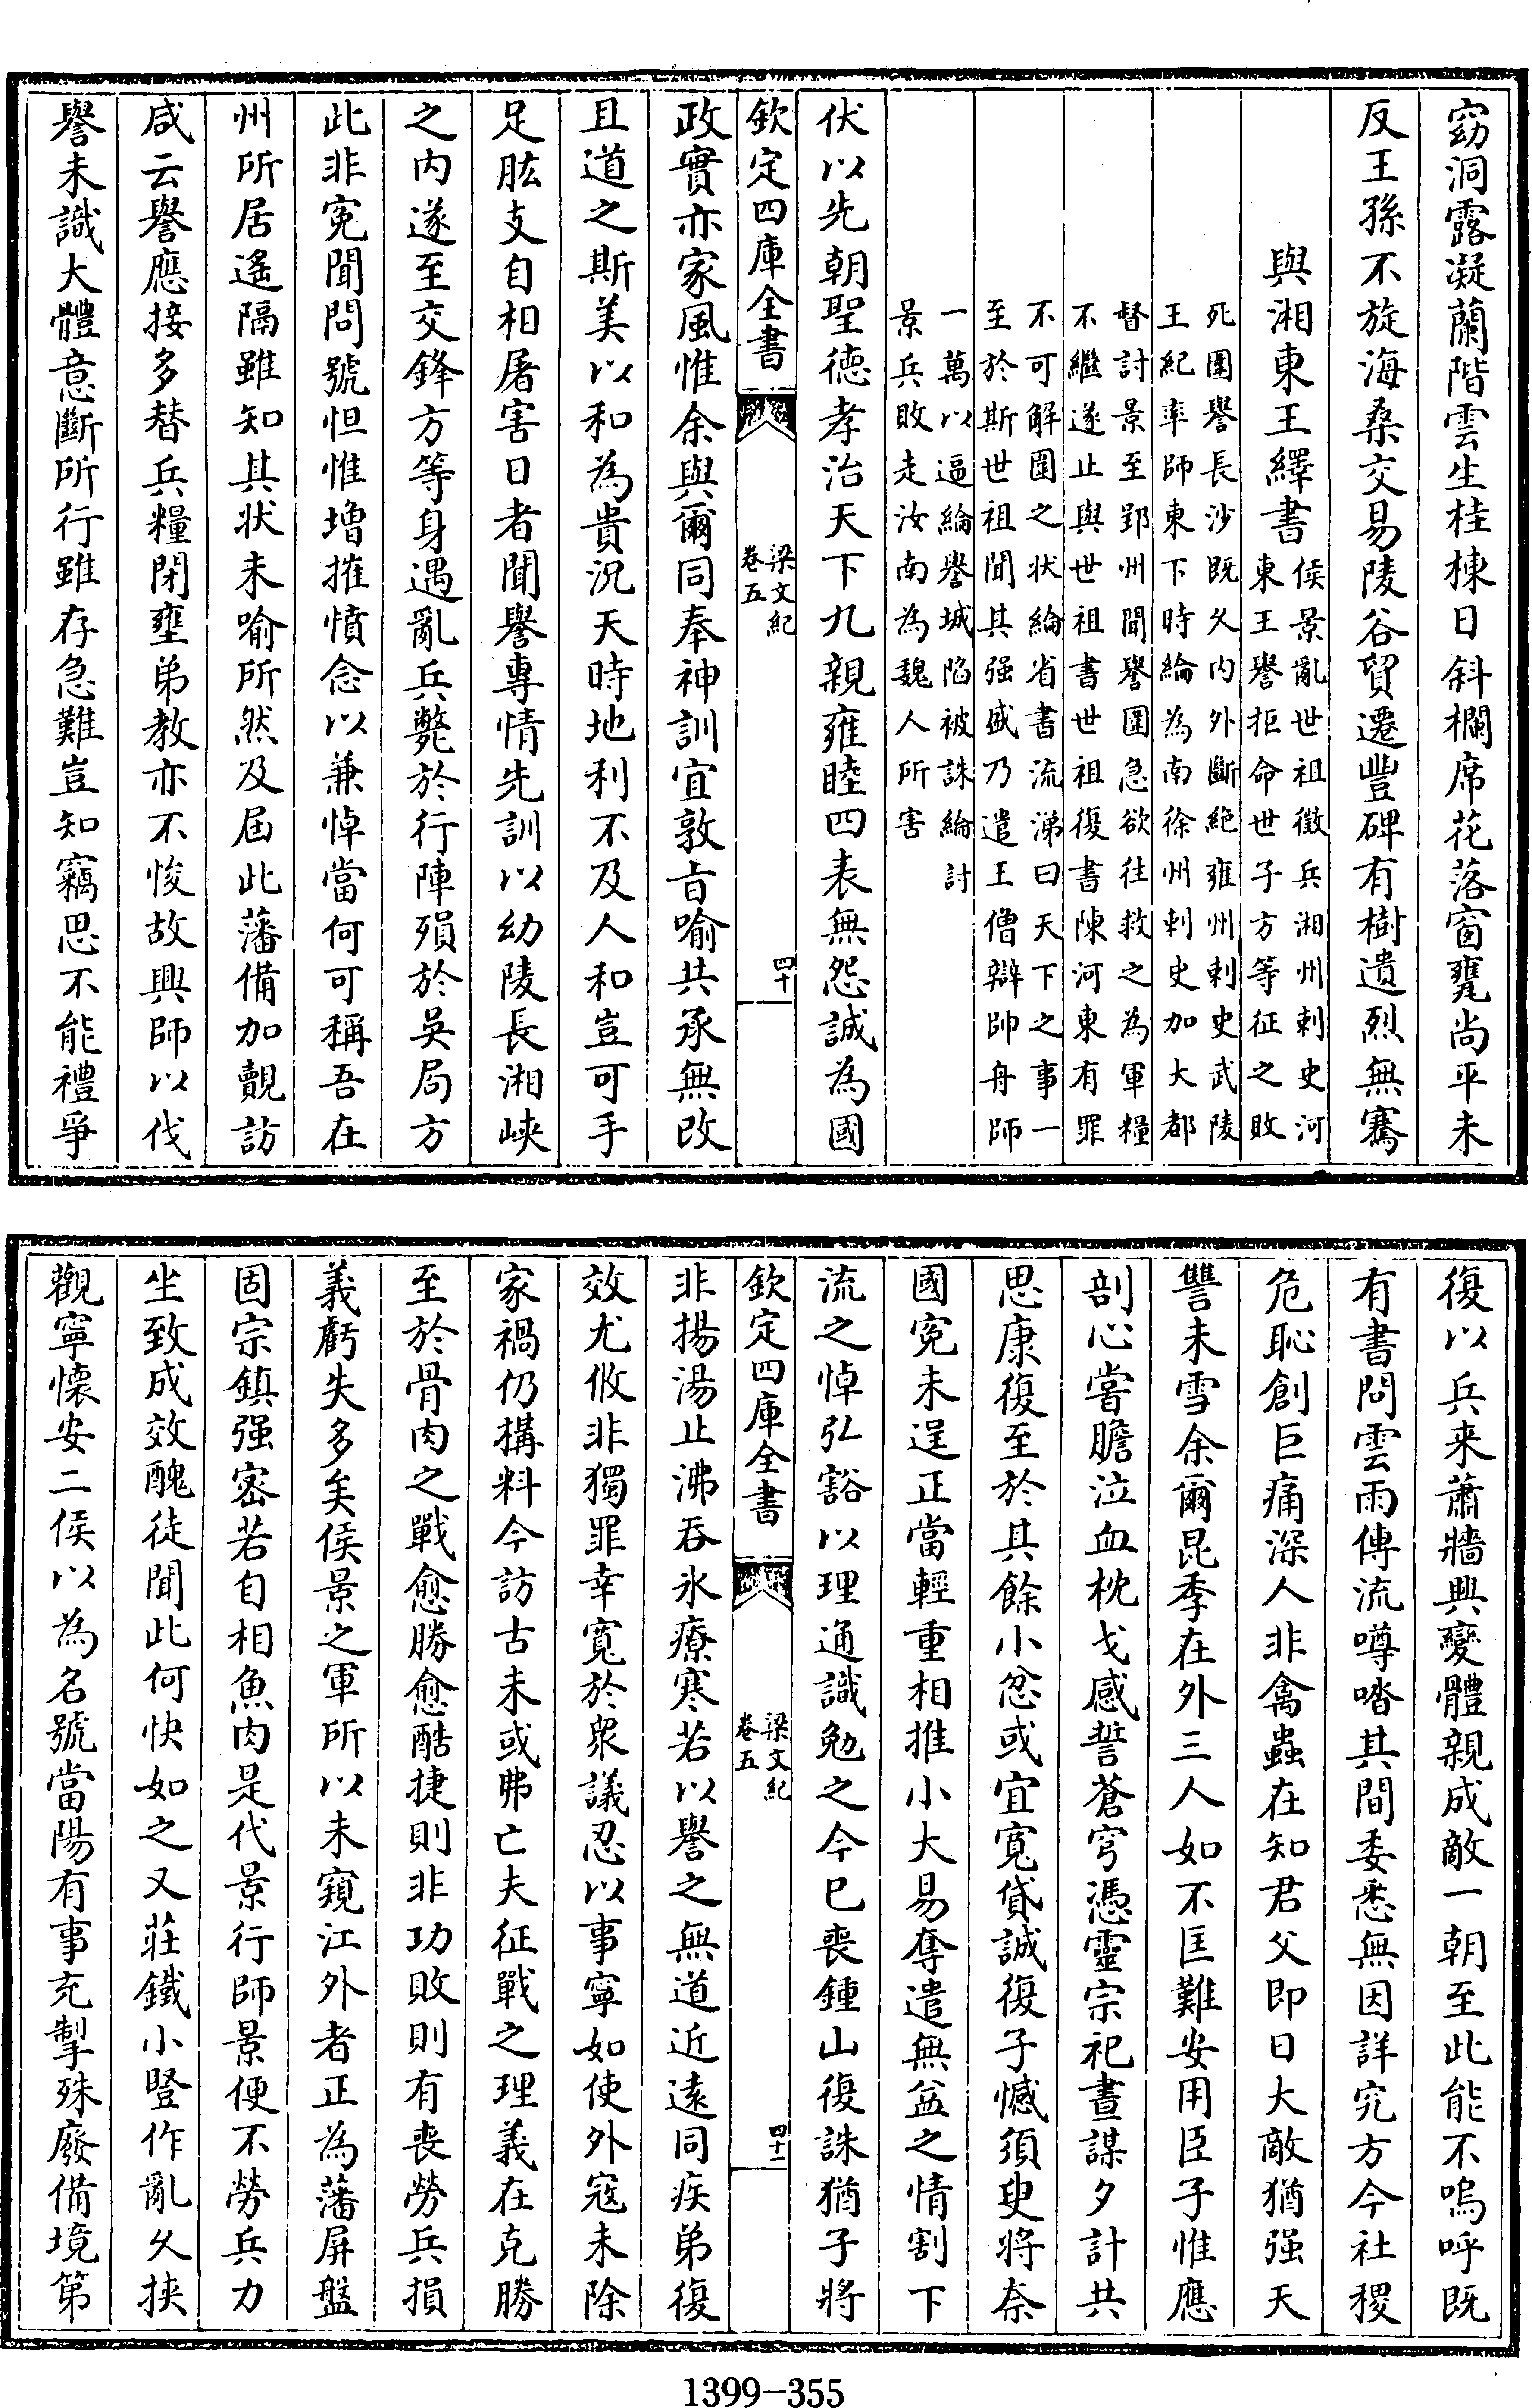 窈洞露凝蘭階雲生桂棟日斜欄席花落窗甍尚平未
反王孫不旋海桑交易陵谷貿遷豐碑有樹遺烈無騫
與湘東王繹書
侯景亂世祖徵兵湘州刺史河
東王譽拒命世子方等征之敗
死圍譽長沙既久內外斷絕雍州刺史武陵
王紀率師東下時綸為南徐州刺史加大都
督討景至郢州聞譽圍急欲往救之為軍糧
不繼遂止與世祖書世祖復書陳河東有罪
不可解圍之狀綸省書流涕曰天下之事一
至於斯世祖聞其强盛乃遣王僧辯帥舟師
一萬以逼綸譽城陷被誅綸討
景兵敗走汝南為魏人所害
伏以先朝聖德孝治天下九親雍睦四表無怨誠為國
欽定四庫全書
梁文紀
卷五
四十
政實亦家風惟余與爾同奉神訓宜敦旨喻共承無改
且道之斯美以和為貴況天時地利不及人和豈可手
足肱支自相屠害日者聞譽專情先訓以幼陵長湘峽
之內遂至交鋒方等身遇亂兵斃於行陣殞於吳局方
此非冤聞問號怛惟增摧憤念以兼悼當何可稱吾在
州所居遙隔雖知其狀未喻所然及屆此藩備加覿訪
咸云譽應接多替兵糧閉壅弟教亦不悛故興師以伐
譽未識大體意斷所行雖存急難豈知竊思不能禮爭
復以兵來蕭牆興變體親成敵一朝至此能不嗚呼既
有書問雲雨傳流噂喈其間委悉無因詳究方今社稷
危恥創巨痛深人非禽蟲在知君父即日大敵猶强天
讐未雪余爾昆季在外三人如不匡難安用臣子惟應
剖心嘗膽泣血枕戈感誓蒼穹憑靈宗祀晝謀夕計共
思康復至於其餘小忿或宜寬貸誠復子憾須臾將奈
國冤未逞正當輕重相推小大易奪遣無益之情割下
流之悼弘豁以理通識勉之今已喪鍾山復誅猶子將
欽定四庫全書
梁文紀
卷五
四十一
非揚湯止沸吞氷療寒若以譽之無道近遠同疾弟復
效尤攸非獨罪幸寬於眾議忍以事寧如使外寇未除
家禍仍構料今訪古未或弗亡夫征戰之理義在克勝
至於骨肉之戰愈勝愈酷捷則非功敗則有喪勞兵損
義虧失多矣侯景之軍所以未窺江外者正為藩屏盤
固宗鎮强密若自相魚肉是代景行師景便不勞兵力
坐致成效醜徒聞此何快如之又莊鐵小豎作亂久挾
觀寧懷安二侯以為名號當陽有事充掣殊廢備境第
1399-355